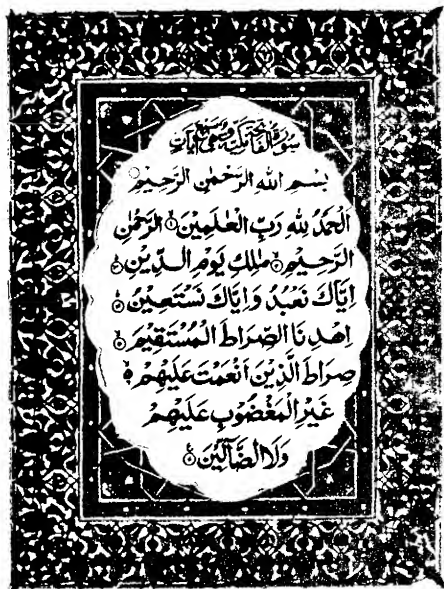 سورة الفاتحة مكية وهى سبع آيات
بِسْمِ اللهِ الرَّحْمٰنِ الرَّحِيْمِ
اَلْحَمْدُ لِلّٰهِ رَبِّ الْعٰلَمِيْنَ ۝ الرَّحْمٰنِ
الرَّحِيْمِ ۝ مٰلِكِ يَوْمِ الدِّيْنِ ۝
اِيَّاكَ نَعْبُدُ وَاِيَّاكَ نَسْتَعِيْنُ ۝
اِهْدِنَا الصِّرَاطَ الْمُسْتَقِيْمَ ۝
صِرَاطَ الَّذِيْنَ اَنْعَمْتَ عَلَيْهِمْ ۝
غَيْرِ الْمَغْضُوْبِ عَلَيْهِمْ
وَلَا الضَّآلِّيْنَ ۝